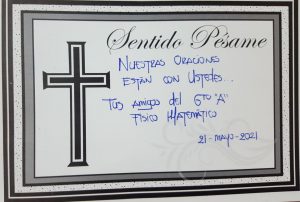 Sentido Pésame
NUESTRAS ORACIONES
ESTÁN CON USTEDES...
TUS AMIGOS DEL 6TO "A"
FÍSICO MATEMÁTICO
21-MAYO-2021